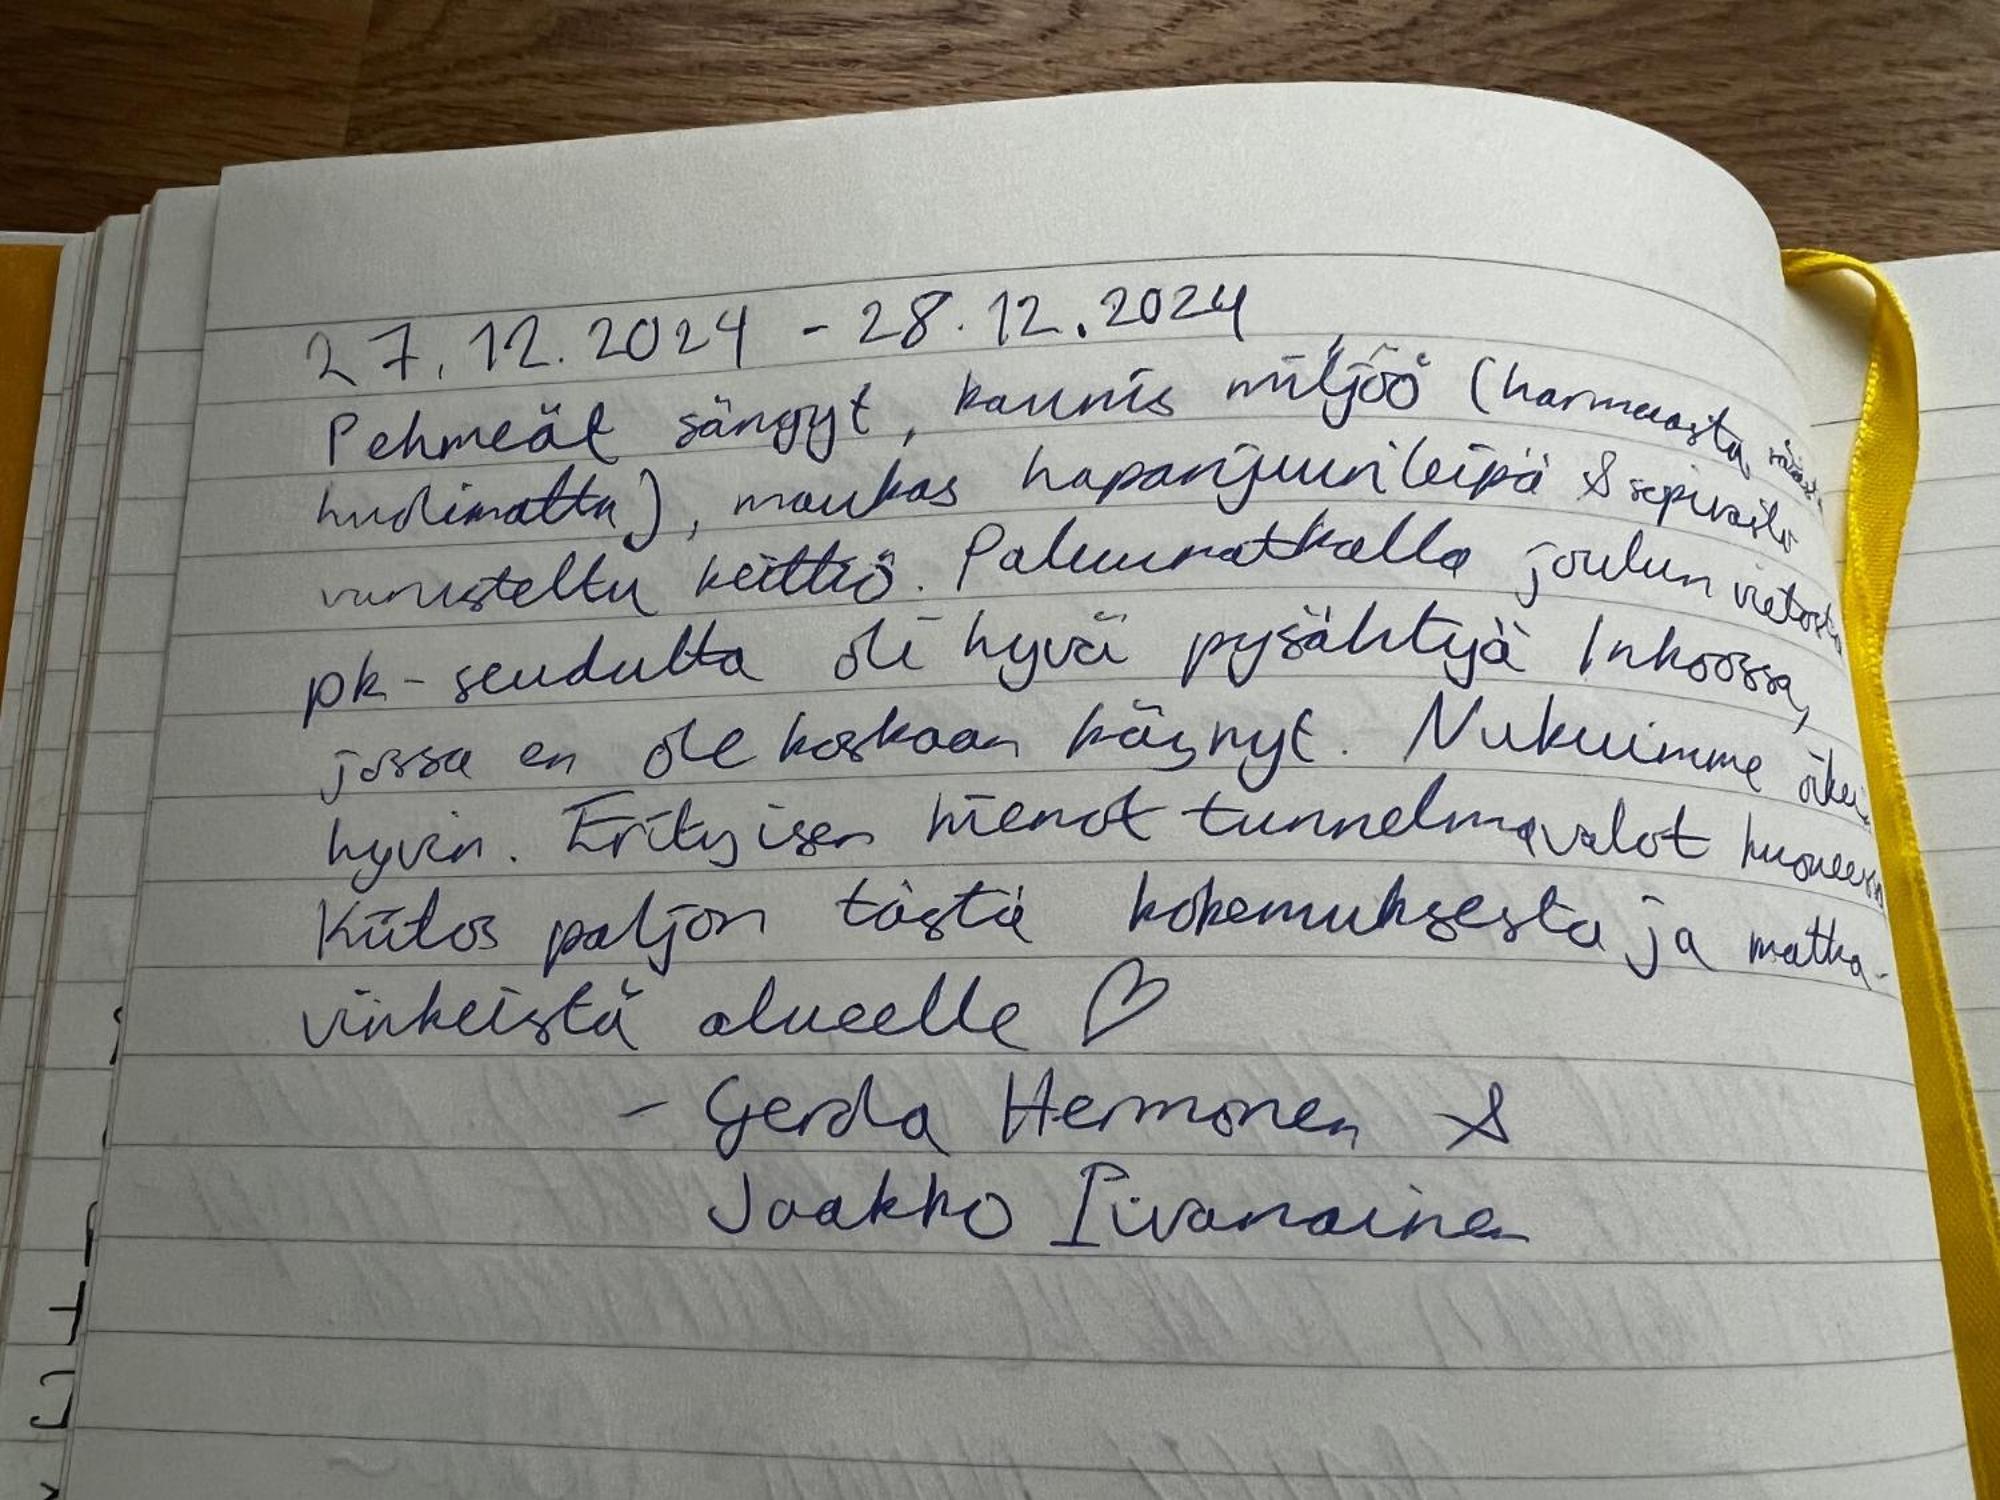 27.12.2024 - 28.12.2024
Pehmeät sängyt, kaunis miljöö (harmaasta säästä
huolimatta), maukas hapanjuurileipä & sopivasti
varusteltu keittiö. Paluumatkalla joulun vietosta
pk-seudulta oli hyvä pysähtyä Inkoossa,
jossa en ole koskaan käynyt. Nukuimme oikein
hyvin. Erityisen hienot tunnelmavalot huoneessa
Kiitos paljon tästä kokemuksesta ja matka-
vinkeistä alueelle ♡
- Gerda Hermonen &
Jaakko Iivanainen